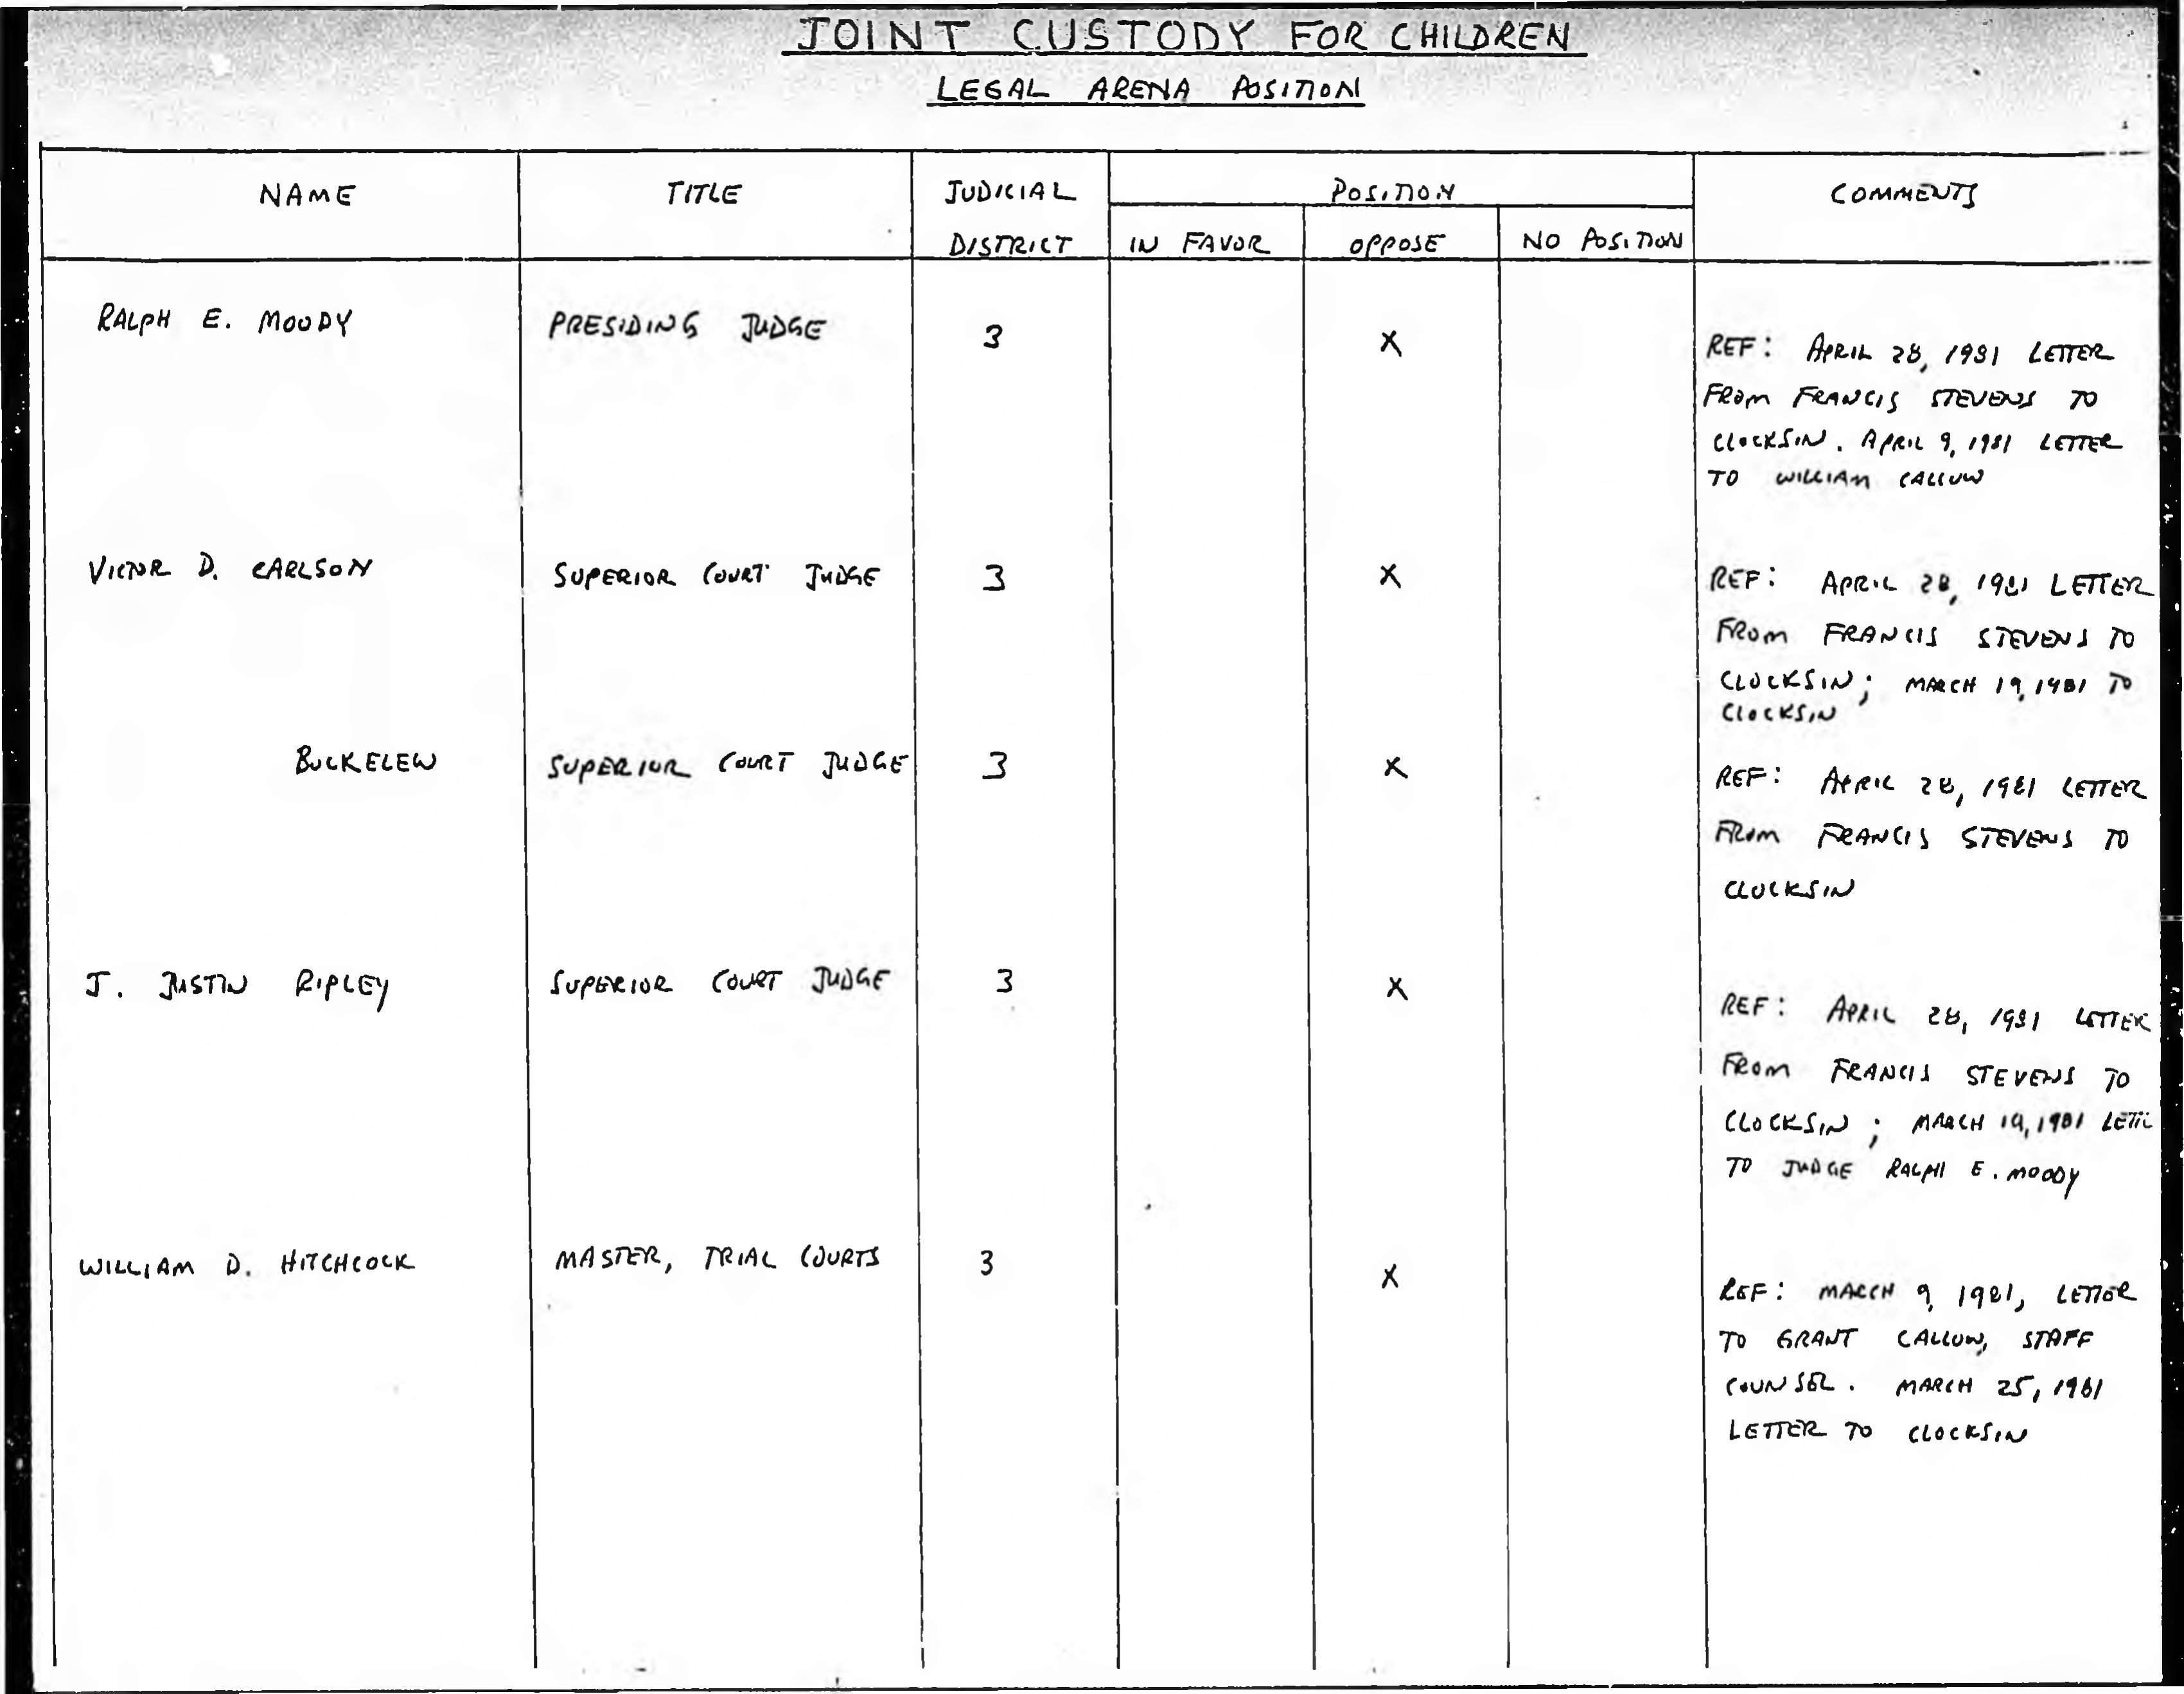 JOINT CUSTODY FOR CHILDREN
LEGAL ARENA POSITION
NAME
TITLE
JUDICIAL
DISTRICT
POSITION
IN FAVOR
OPPOSE
NO POSITION
COMMENTS
RALPH E. MOODY
PRESIDING JUDGE
3
X
REF: APRIL 28, 1981 LETTER
FROM FRANCIS STEVENS TO
CLOCKSIN. APRIL 9, 1981 LETTER
TO WILLIAM CALLOW
VICTOR D. CARLSON
SUPERIOR COURT JUDGE
3
X
REF: APRIL 28, 1981 LETTER
FROM FRANCIS STEVENS TO
CLOCKSIN; MARCH 19, 1981 TO
CLOCKSIN
BUCKELEW
SUPERIOR COURT JUDGE
3
X
REF: APRIL 28, 1981 LETTER
FROM FRANCIS STEVENS TO
CLOCKSIN
J. JUSTIN RIPLEY
SUPERIOR COURT JUDGE
3
X
REF: APRIL 28, 1981 LETTER
FROM FRANCIS STEVENS TO
CLOCKSIN; MARCH 19, 1981
TO JUDGE RALPH E. MOODY
WILLIAM D. HITCHCOCK
MASTER, TRIAL COURTS
3
X
REF: MARCH 9, 1981, LETTER
TO GRANT CALLOW, STAFF
COUNSEL. MARCH 25, 1981
LETTER TO CLOCKSIN